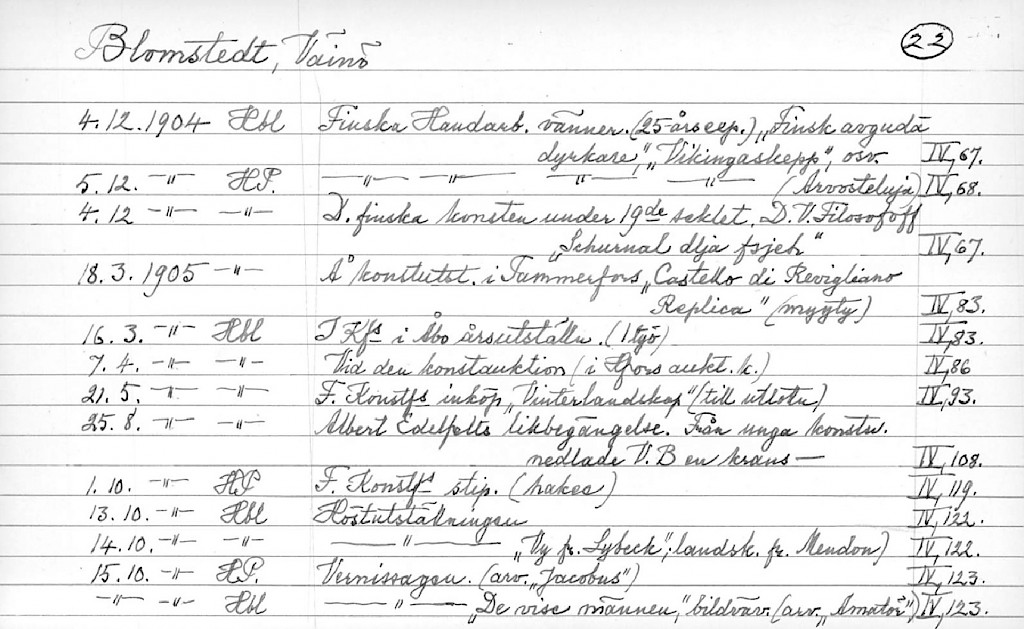 Blomstedt, Väinö 22
4.12.1904 Hbl Finska Handarb. vänner. (25-årsexp.) „Finsk avguda
dyrkare", „Vikingaskepp", osv. IV, 67.
5.12. –"– H.P. –"– –"– –"– –"– (Arvostelija) IV, 68.
4.12 –"– –"– D. finska konsten under 19de seklet. D.V. Filosofoff
„Schurnal dlja fsjeh" IV, 67.
18.3. 1905 –"– Å konstutst. i Tammerfors „Castello di Revigliano
Replica" (myyty) IV, 83.
16.3. –"– Hbl I Kfs i Åbo årsutställn. (1 työ) IV, 83.
7.4. –"– –"– Vid den konstauktion (i Hfors aukt.k.) IV, 86
21.5. –"– –"– F. Konstfs inköp „Vinterlandskap" (till utlotn.) IV, 93.
25.8. –"– –"– Albert Edelfelts likbegängelse. Från unga konstn.
nedlade V.B en krans — IV, 108.
1.10. –"– H.P F. Konstfs stip. (hakee) IV, 119.
13.10. –"– Hbl Höstutställningen IV, 122.
14.10. –"– –"– –"– „Vy fr. Lybeck", landsk. fr. Meudon) IV, 122.
15.10. –"– H.P. Vernissagen. (arv. „Jacobus") IV, 123.
–"– –"– Hbl –"– „De vise männen," bildväv. (arv. „Amatör") IV, 123.